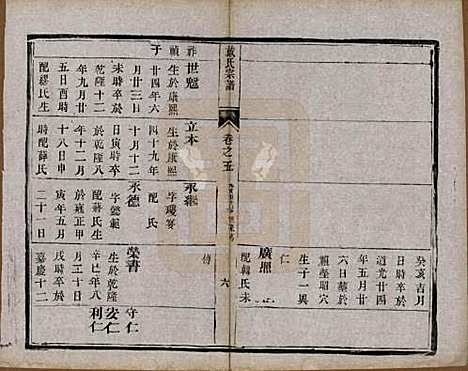 癸亥吉月
日時卒於
道光廿四
年五月廿
六日墓於
賴塋昭穴
生子一興
仁
廣熙
配韓氏未
傳
戴氏宗譜
卷之五
六
祚世魁
禎生於康熙
子廿四年六
月廿三日
未時卒於
乾隆十二
年九月廿
五日酉時
配繆氏生
立本
生於康熙
四十九年
十月十二
日時卒於
乾隆八
年十二月
十八日申
時配薛氏
永繼
字瓊宴
配氏
永德
字懿範
配蔣氏生
於雍正甲
寅年五月
二十日
榮書
生於乾隆
辛巳年八
月二十日
戌時卒於
嘉慶十二
守仁
安仁
利仁